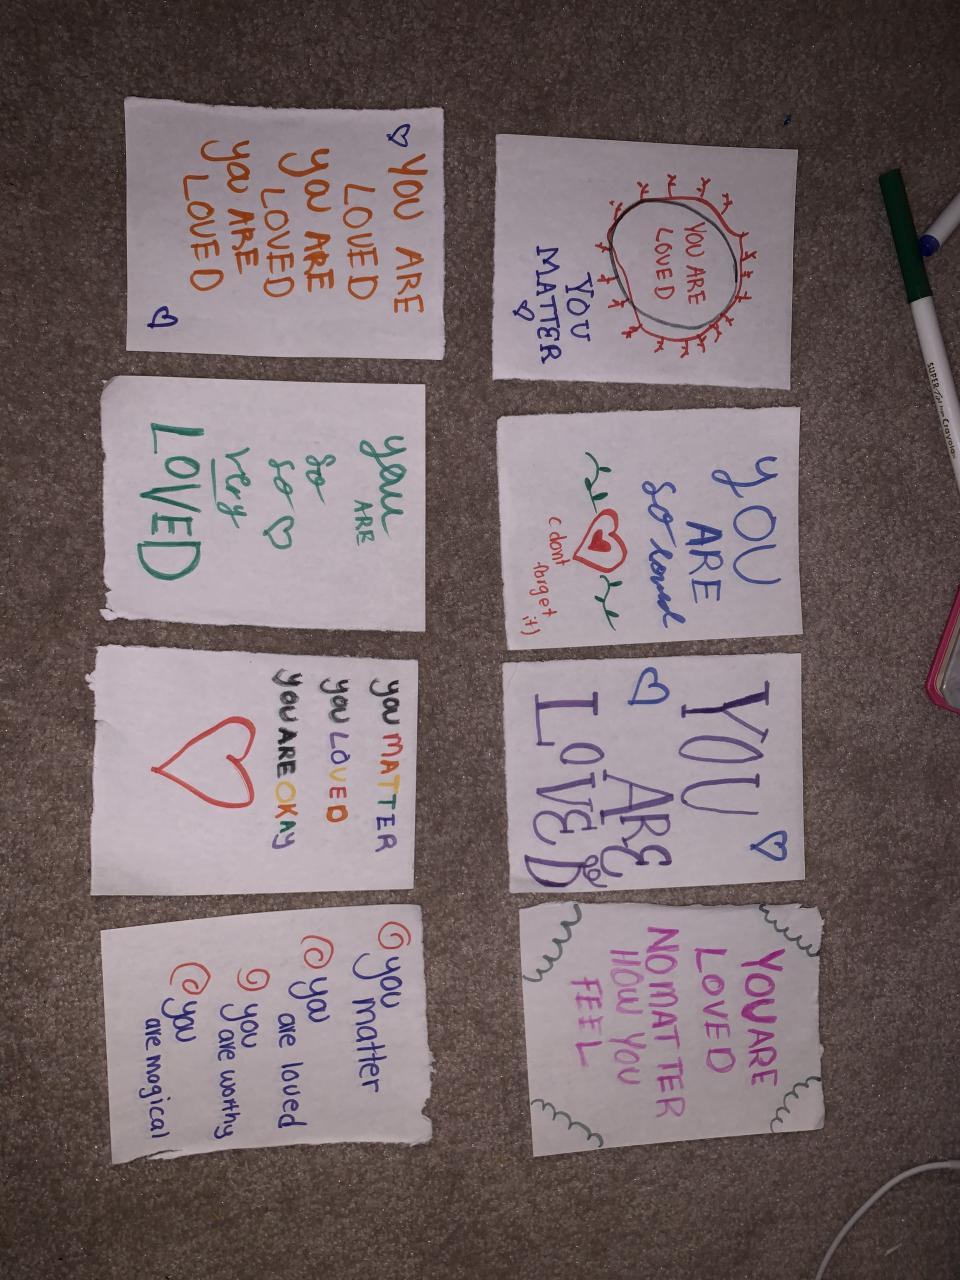 SUPER Tips Crayola
YOU ARE
LOVED
YOU
MATTER
YOU
ARE
so loved
(dont
forget
it)
YOU
ARE
LOVED
YOU ARE
LOVED
NO MATTER
HOW YOU
FEEL
YOU ARE
LOVED
you ARE
LOVED
you ARE
LOVED
you
ARE
so
so
very
LOVED
you MATTER
you LOVED
YOU ARE OKAY
you matter
you are loved
you are worthy
you are magical